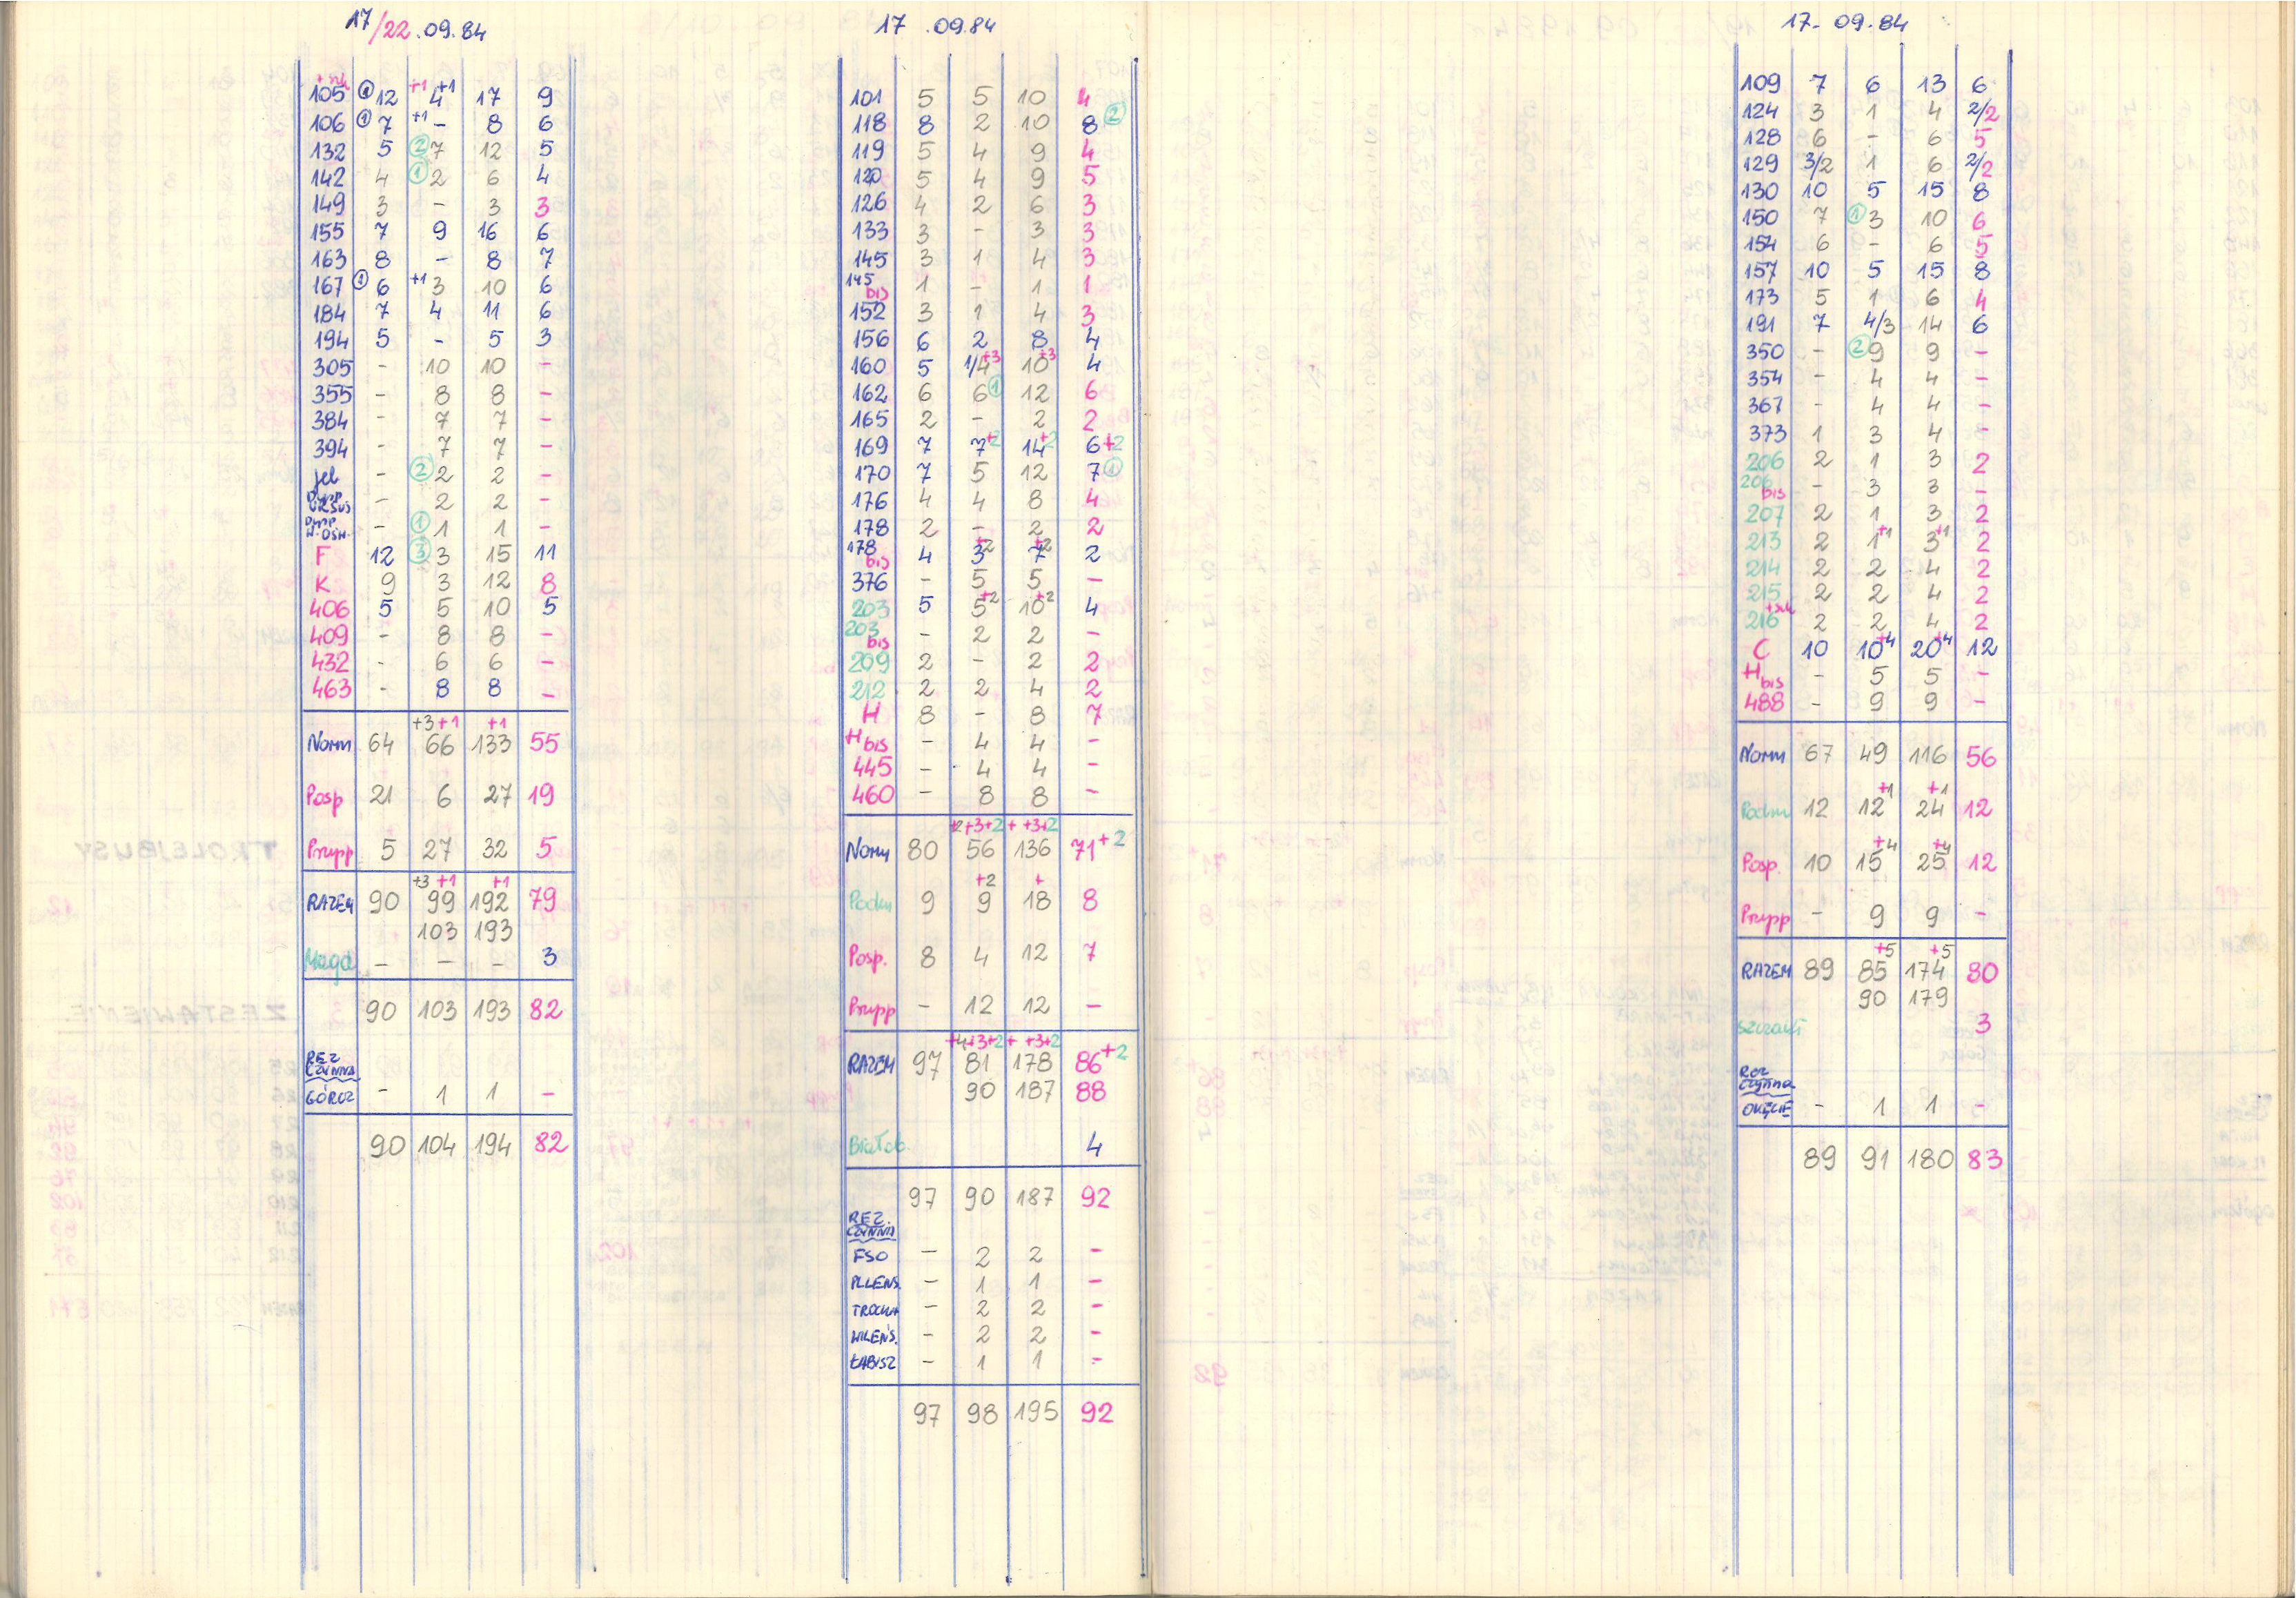 17/22.09.84
+szk
105 ① 12 +1 4 +1 17 9
106 ① 7 +1 - 8 6
132 5 ② 7 12 5
142 4 ① 2 6 4
149 3 - 3 3
155 7 9 16 6
163 8 - 8 7
167 ① 6 +1 3 10 6
184 7 4 11 6
194 5 - 5 3
305 - 10 10 -
355 - 8 8 -
384 - 7 7 -
394 - 7 7 -
Jel - ② 2 2 -
URSUS - 2 2 -
- ① 1 1 -
F 12 ③ 3 15 11
K 9 3 12 8
406 5 5 10 5
409 - 8 8 -
432 - 6 6 -
463 - 8 8 -
+3 +1 +1
Norm 64 66 133 55
Posp 21 6 27 19
Prupp 5 27 32 5
+3 +1 +1
RAZEM 90 99 192 79
103 193
Magd - - - 3
90 103 193 82
REZ
CZYNNA
GÓRCZ - 1 1 -
90 104 194 82
17 .09.84
101 5 5 10 4
118 8 2 10 8 ②
119 5 4 9 4
120 5 4 9 5
126 4 2 6 3
133 3 - 3 3
145 3 1 4 3
145 bis 1 - 1 1
152 3 1 4 3
156 6 2 8 4
160 5 1/4 +3 10 +3 4
162 6 6 ① 12 6
165 2 - 2 2
169 7 7 +2 14 +2 6+2
170 7 5 12 7 ①
176 4 4 8 4
178 2 - 2 2
178 bis 4 3 +2 7 +2 2
376 - 5 5 -
203 5 5 +2 10 +2 4
203 bis - 2 2 -
209 2 - 2 2
212 2 2 4 2
H 8 - 8 7
H bis - 4 4 -
445 - 4 4 -
460 - 8 8 -
+2+3+2 + +3+2
Norm 80 56 136 71+2
+2 +
Podm 9 9 18 8
Posp. 8 4 12 7
Prupp - 12 12 -
+4+3+2 + +3+2
RAZEM 97 81 178 86+2
90 187 88
Białob. 4
97 90 187 92
REZ.
CZYNNA
FSO - 2 2 -
PLLENS. - 1 1 -
TROCKA - 2 2 -
WILEŃS. - 2 2 -
ŁABISZ - 1 1 -
97 98 195 92
17- 09.84
109 7 6 13 6
124 3 1 4 2/2
128 6 - 6 5
129 3/2 1 6 2/2
130 10 5 15 8
150 7 ① 3 10 6
154 6 - 6 5
157 10 5 15 8
173 5 1 6 4
191 7 4/3 14 6
350 - ② 9 9 -
354 - 4 4 -
367 - 4 4 -
373 1 3 4 -
206 2 1 3 2
206 bis - 3 3 -
207 2 1 3 2
213 2 1 +1 3 +1 2
214 2 2 4 2
215 2 2 4 2
+szk
216 2 2 4 2
C 10 10 +4 20 +4 12
H bis - 5 5 -
488 - 9 9 -
Norm 67 49 116 56
+1 +1
Podm 12 12 24 12
+4 +4
Posp. 10 15 25 12
Prupp - 9 9 -
+5 +5
RAZEM 89 85 174 80
90 179
Szczaki 3
Rez
czynna
OKĘCIE - 1 1 -
89 91 180 83